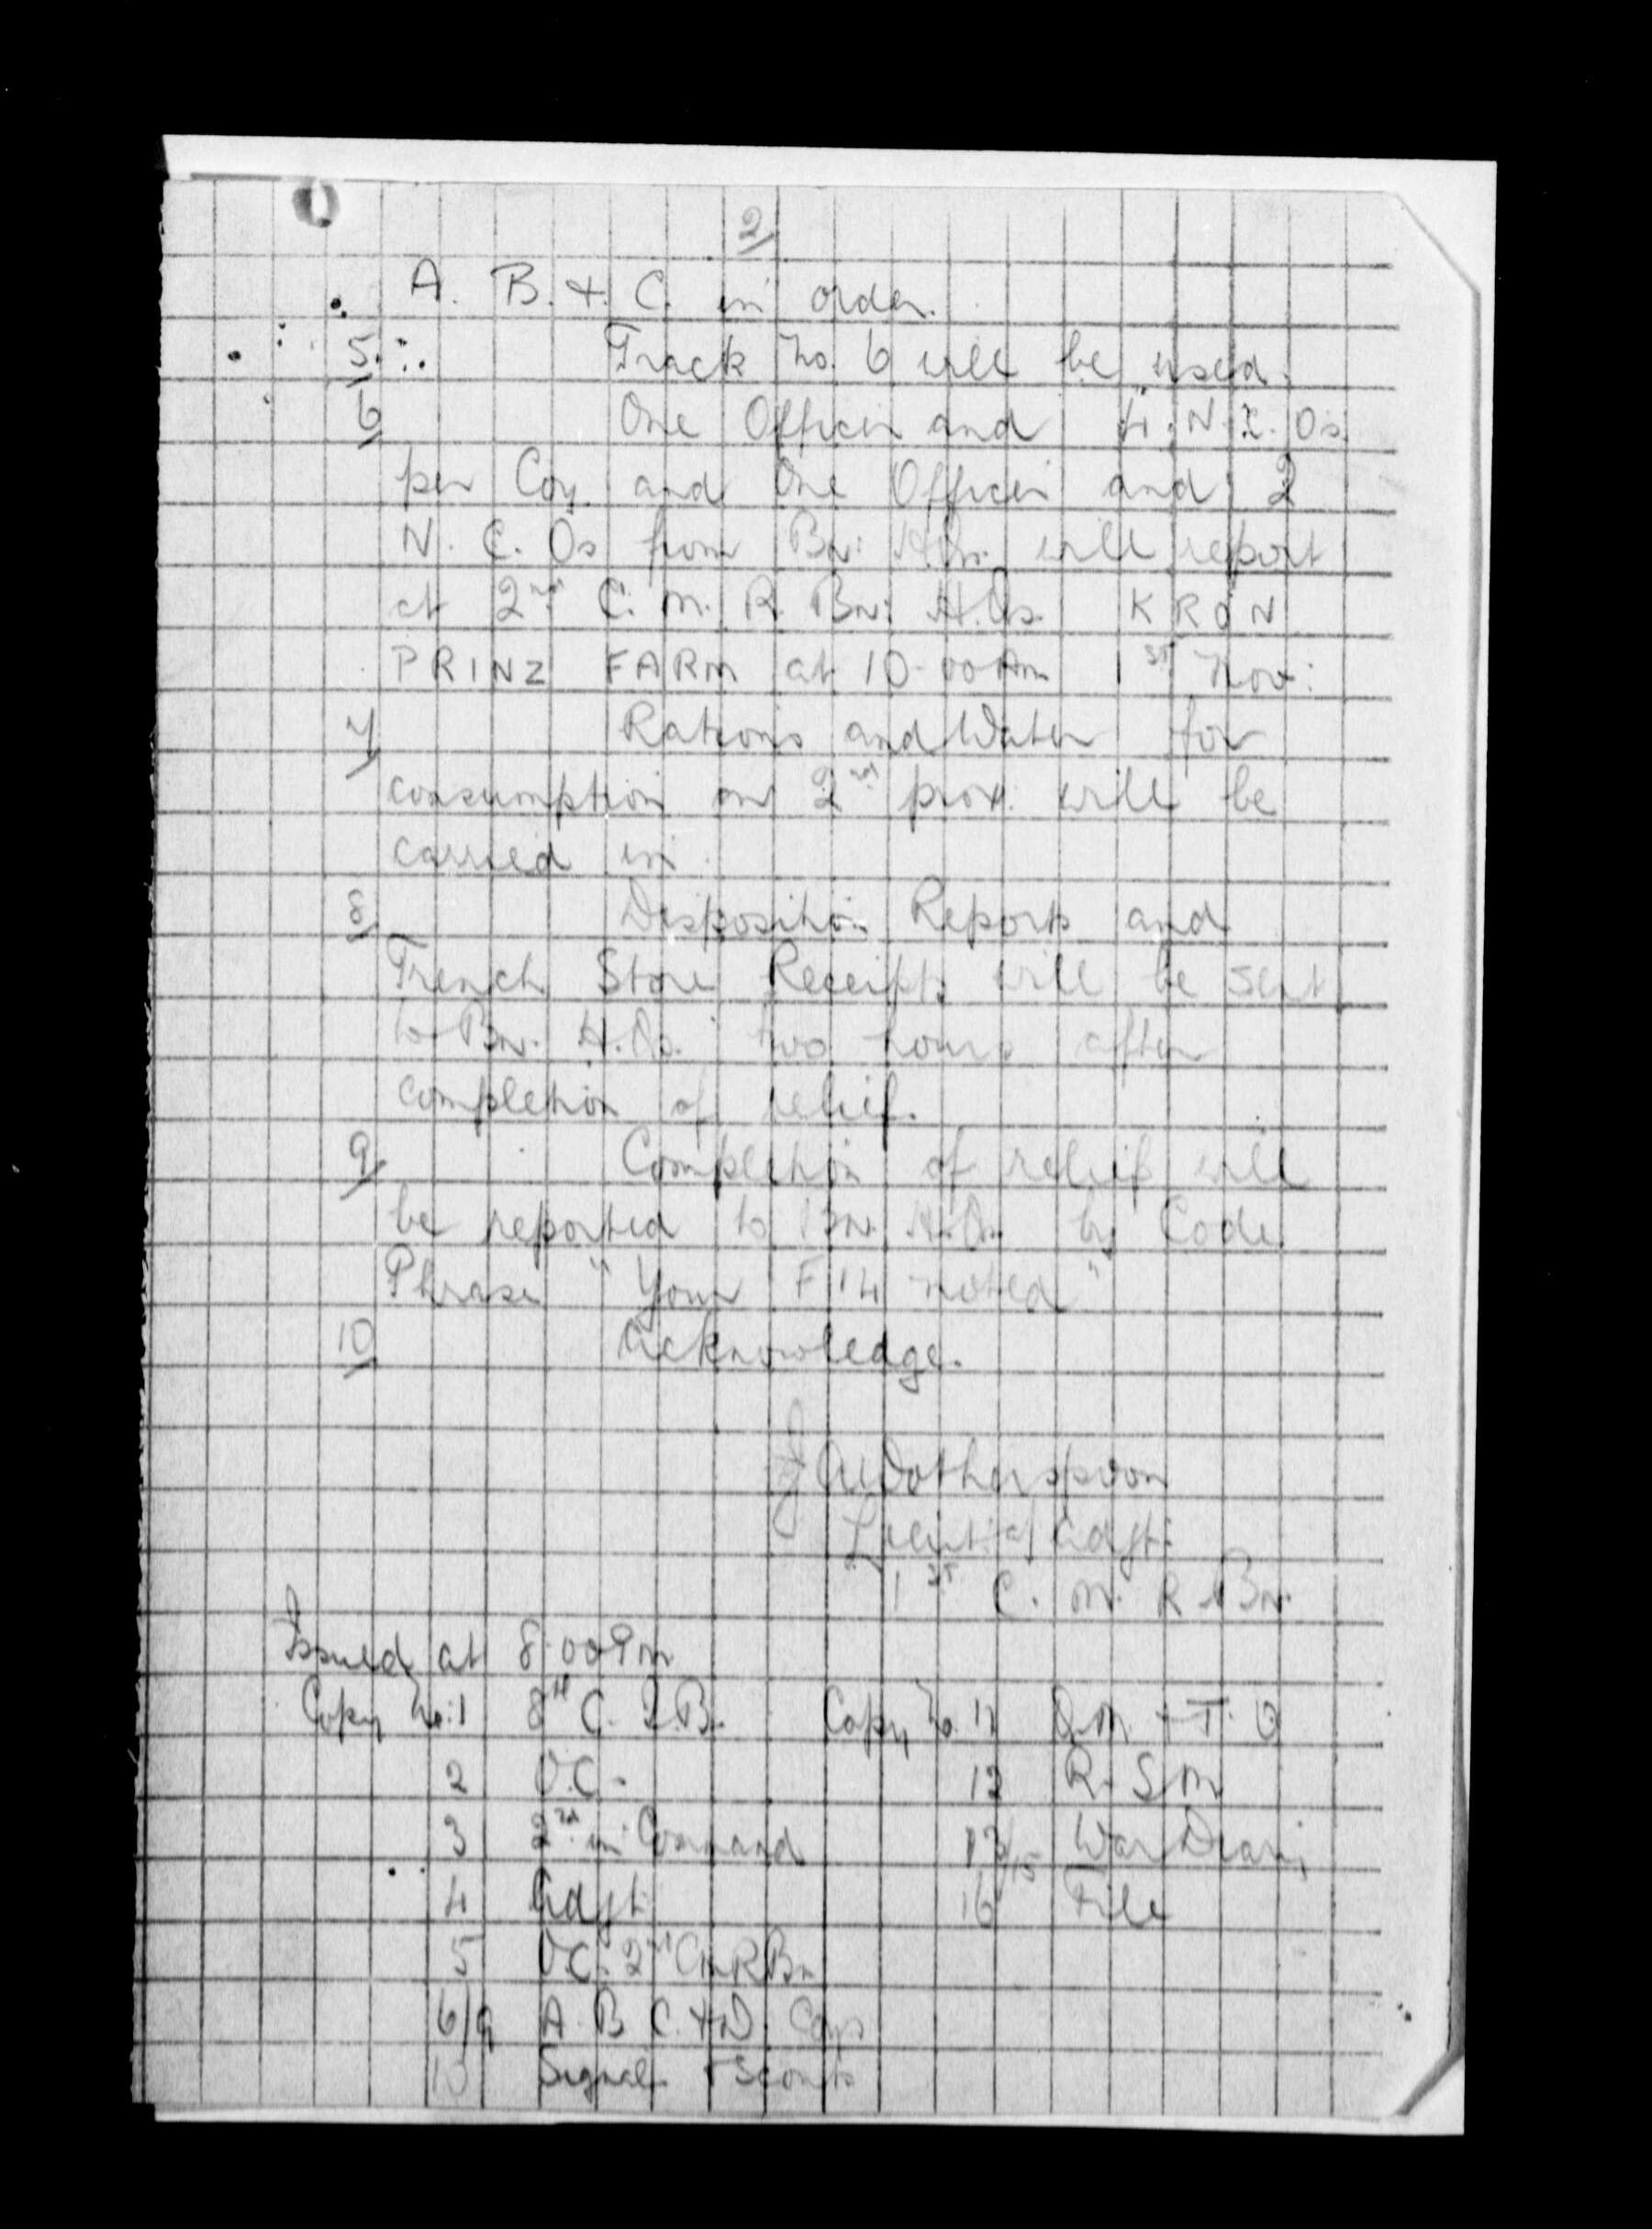 2/
A. B. + C. in order.
5/ Track No. 6 will be used.
6/ One Officer and 4. N. C. Os
per Coy. and One Officer and 2
N. C. Os from Bn: H.Qs. will report
at 2nd C. M. R. Bn: H.Qs. KRON
PRINZ FARM at 10-00 Am 1st Nov:
7/ Rations and Water for
consumption on 2nd prox. will be
carried in.
8/ Disposition Reports and
Trench Store Receipts will be sent
to Bn. H.Qs. two hours after
completion of relief.
9/ Completion of relief will
be reported to Bn. H.Qs. by Code
Phrase "Your F 14 noted"
10/ Acknowledge.
Wotherspoon
Lieut: a/ Adjt:
1st C. M. R. Bn.
Issued at 8.00 Pm
Copy No: 1 8th C. I. B. Copy No. 11 Q.M. + T. O
2 O.C. 12 R. S. M
3 2nd in Command 13/15 War Diary
4 Adjt: 16 File
5 O.C. 2nd CMR Bn
6/9 A. B C. + D. Coys
10 Signals + Scouts